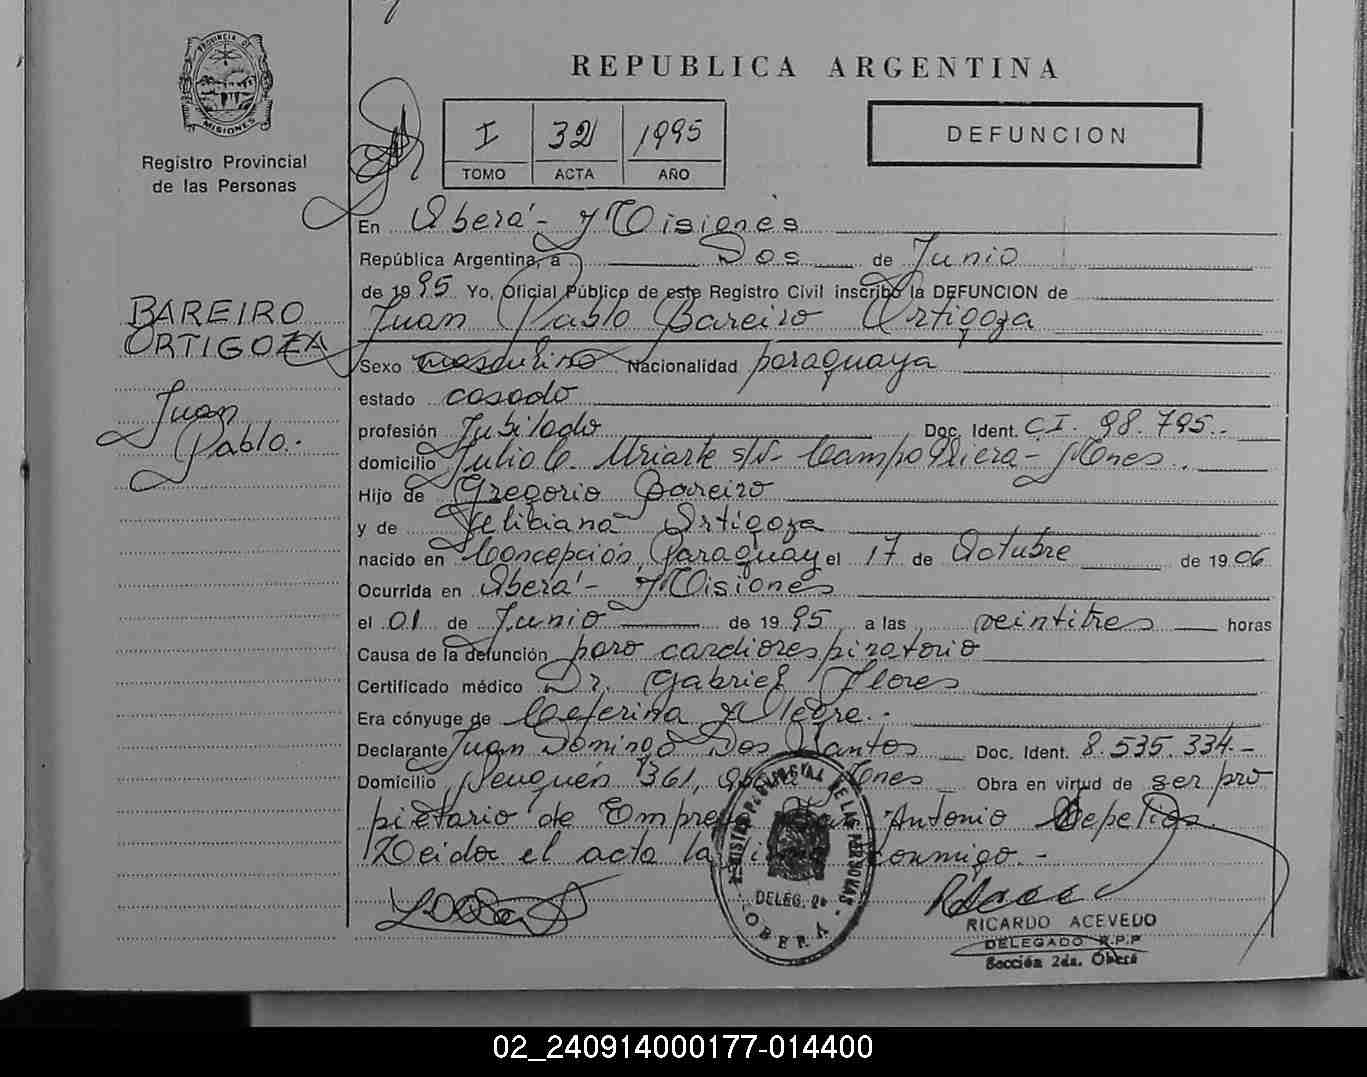 PROVINCIA DE
MISIONES
Registro Provincial
de las Personas
BAREIRO
ORTIGOZA
Juan
Pablo.
REPUBLICA ARGENTINA
I 32 1995
TOMO ACTA AÑO
DEFUNCION
En Oberá - Misiones
República Argentina, a Dos de Junio
de 1995 Yo, Oficial Público de este Registro Civil inscribo la DEFUNCION de
Juan Pablo Bareiro Ortigoza
Sexo masculino Nacionalidad paraguaya
estado casado
profesión Jubilado Doc. Ident. C.I. 98.795.-
domicilio Julio C. Uriarte s/N- Campo Viera - Mnes.
Hijo de Gregorio Bareiro
y de Feliciana Ortigoza
nacido en Concepción, Paraguay el 17 de Octubre de 1906
Ocurrida en Oberá - Misiones
el 01 de Junio de 1995 a las veintitres horas
Causa de la defunción paro cardiorespiratorio
Certificado médico Dr. Gabriel Flores
Era cónyuge de Ceferina Alegre.-
Declarante Juan Domingo Dos Santos Doc. Ident. 8.535.334.-
Domicilio Neuquén 1361, Oberá Mnes Obra en virtud de ser pro
pietario de Empresa Antonio Sepelios.
Leida el acta la firma conmigo.-
DELEG. 2a
OBERA
RICARDO ACEVEDO
DELEGADO R.P.P
Sección 2da. Oberá
02_240914000177-014400